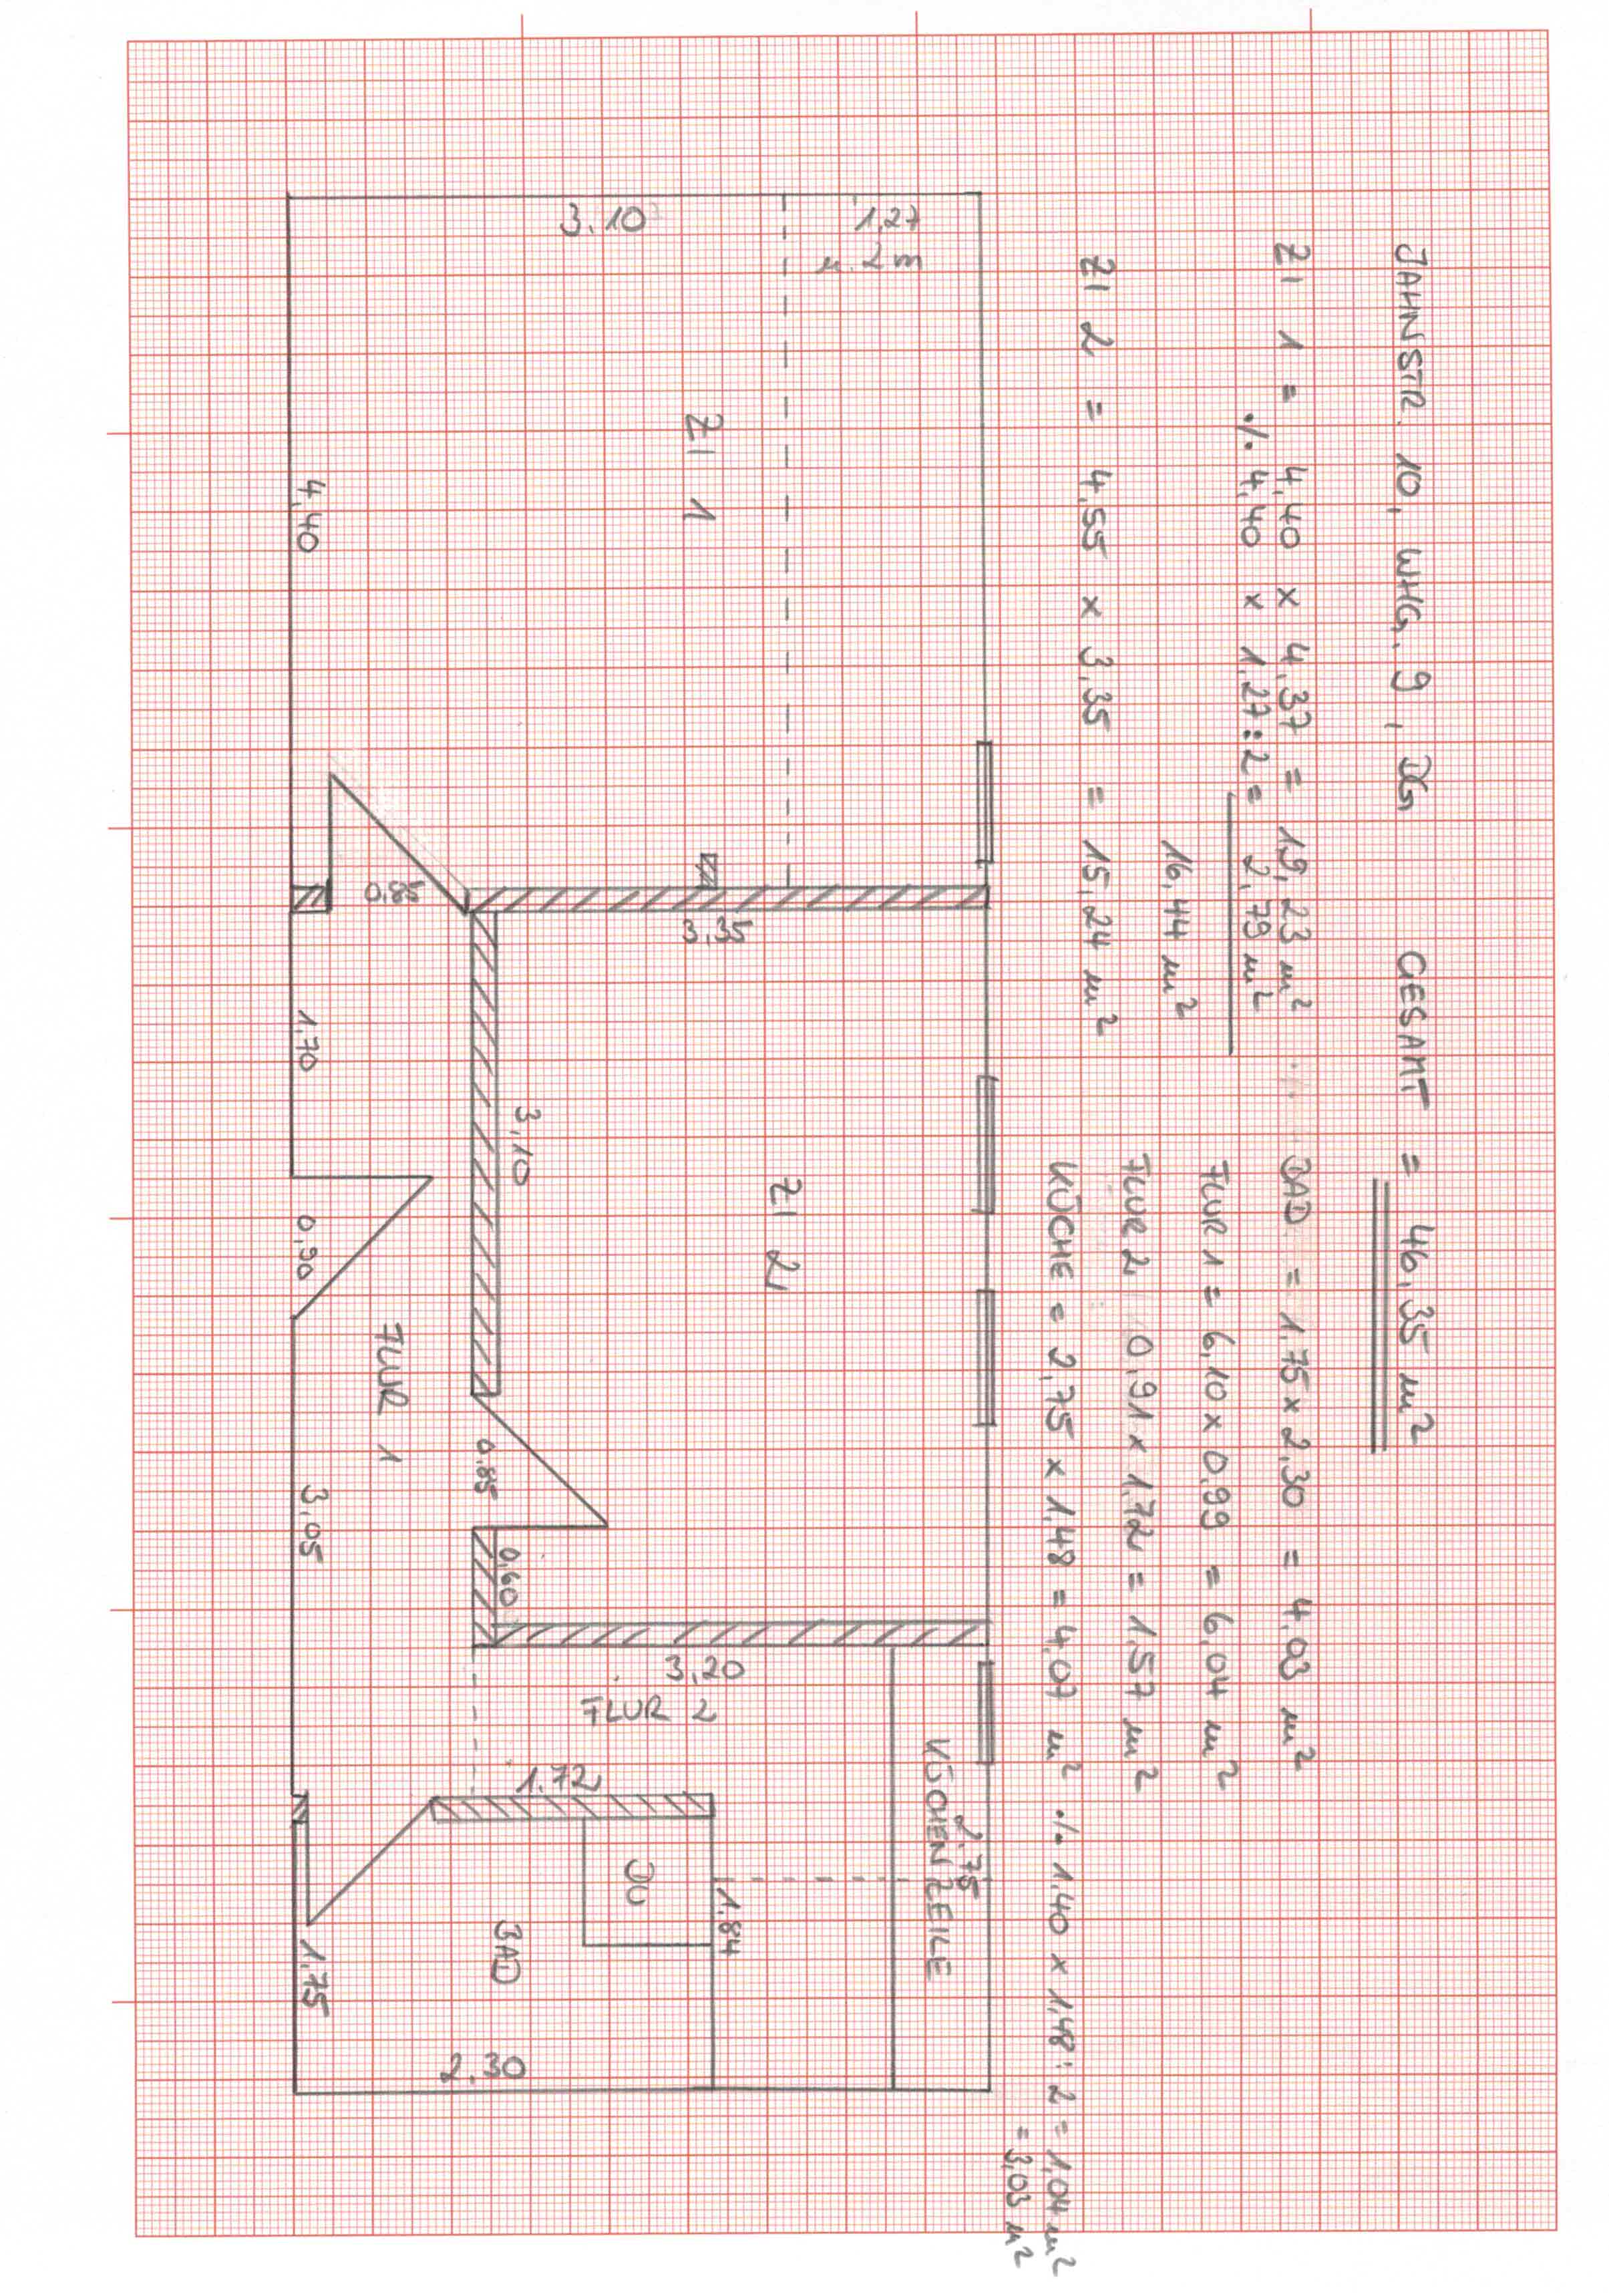 JAHNSTR. 10, WHG. 9, DG GESAMT = 46,35 m²
ZI 1 = 4,40 x 4,37 = 19,23 m²
./. 4,40 x 1,27:2 = 2,79 m²
16,44 m²
ZI 2 = 4,55 x 3,35 = 15,24 m²
BAD = 1.75 x 2,30 = 4,03 m²
FLUR 1 = 6,10 x 0,99 = 6,04 m²
FLUR 2 0,91 x 1,72 = 1,57 m²
KÜCHE = 2,75 x 1,48 = 4,07 m² ./. 1,40 x 1,48:2 = 1,04 m²
= 3,03 m²
1,27
u. 2m
3.10
ZI 1
4,40
0,85
3,35
ZI 2
3,10
1,70
0,90
FLUR 1
0,85
0,60
3,05
3,20
FLUR 2
1.72
KÜCHENZEILE
2.75
1.84
DU
BAD
1,75
2.30